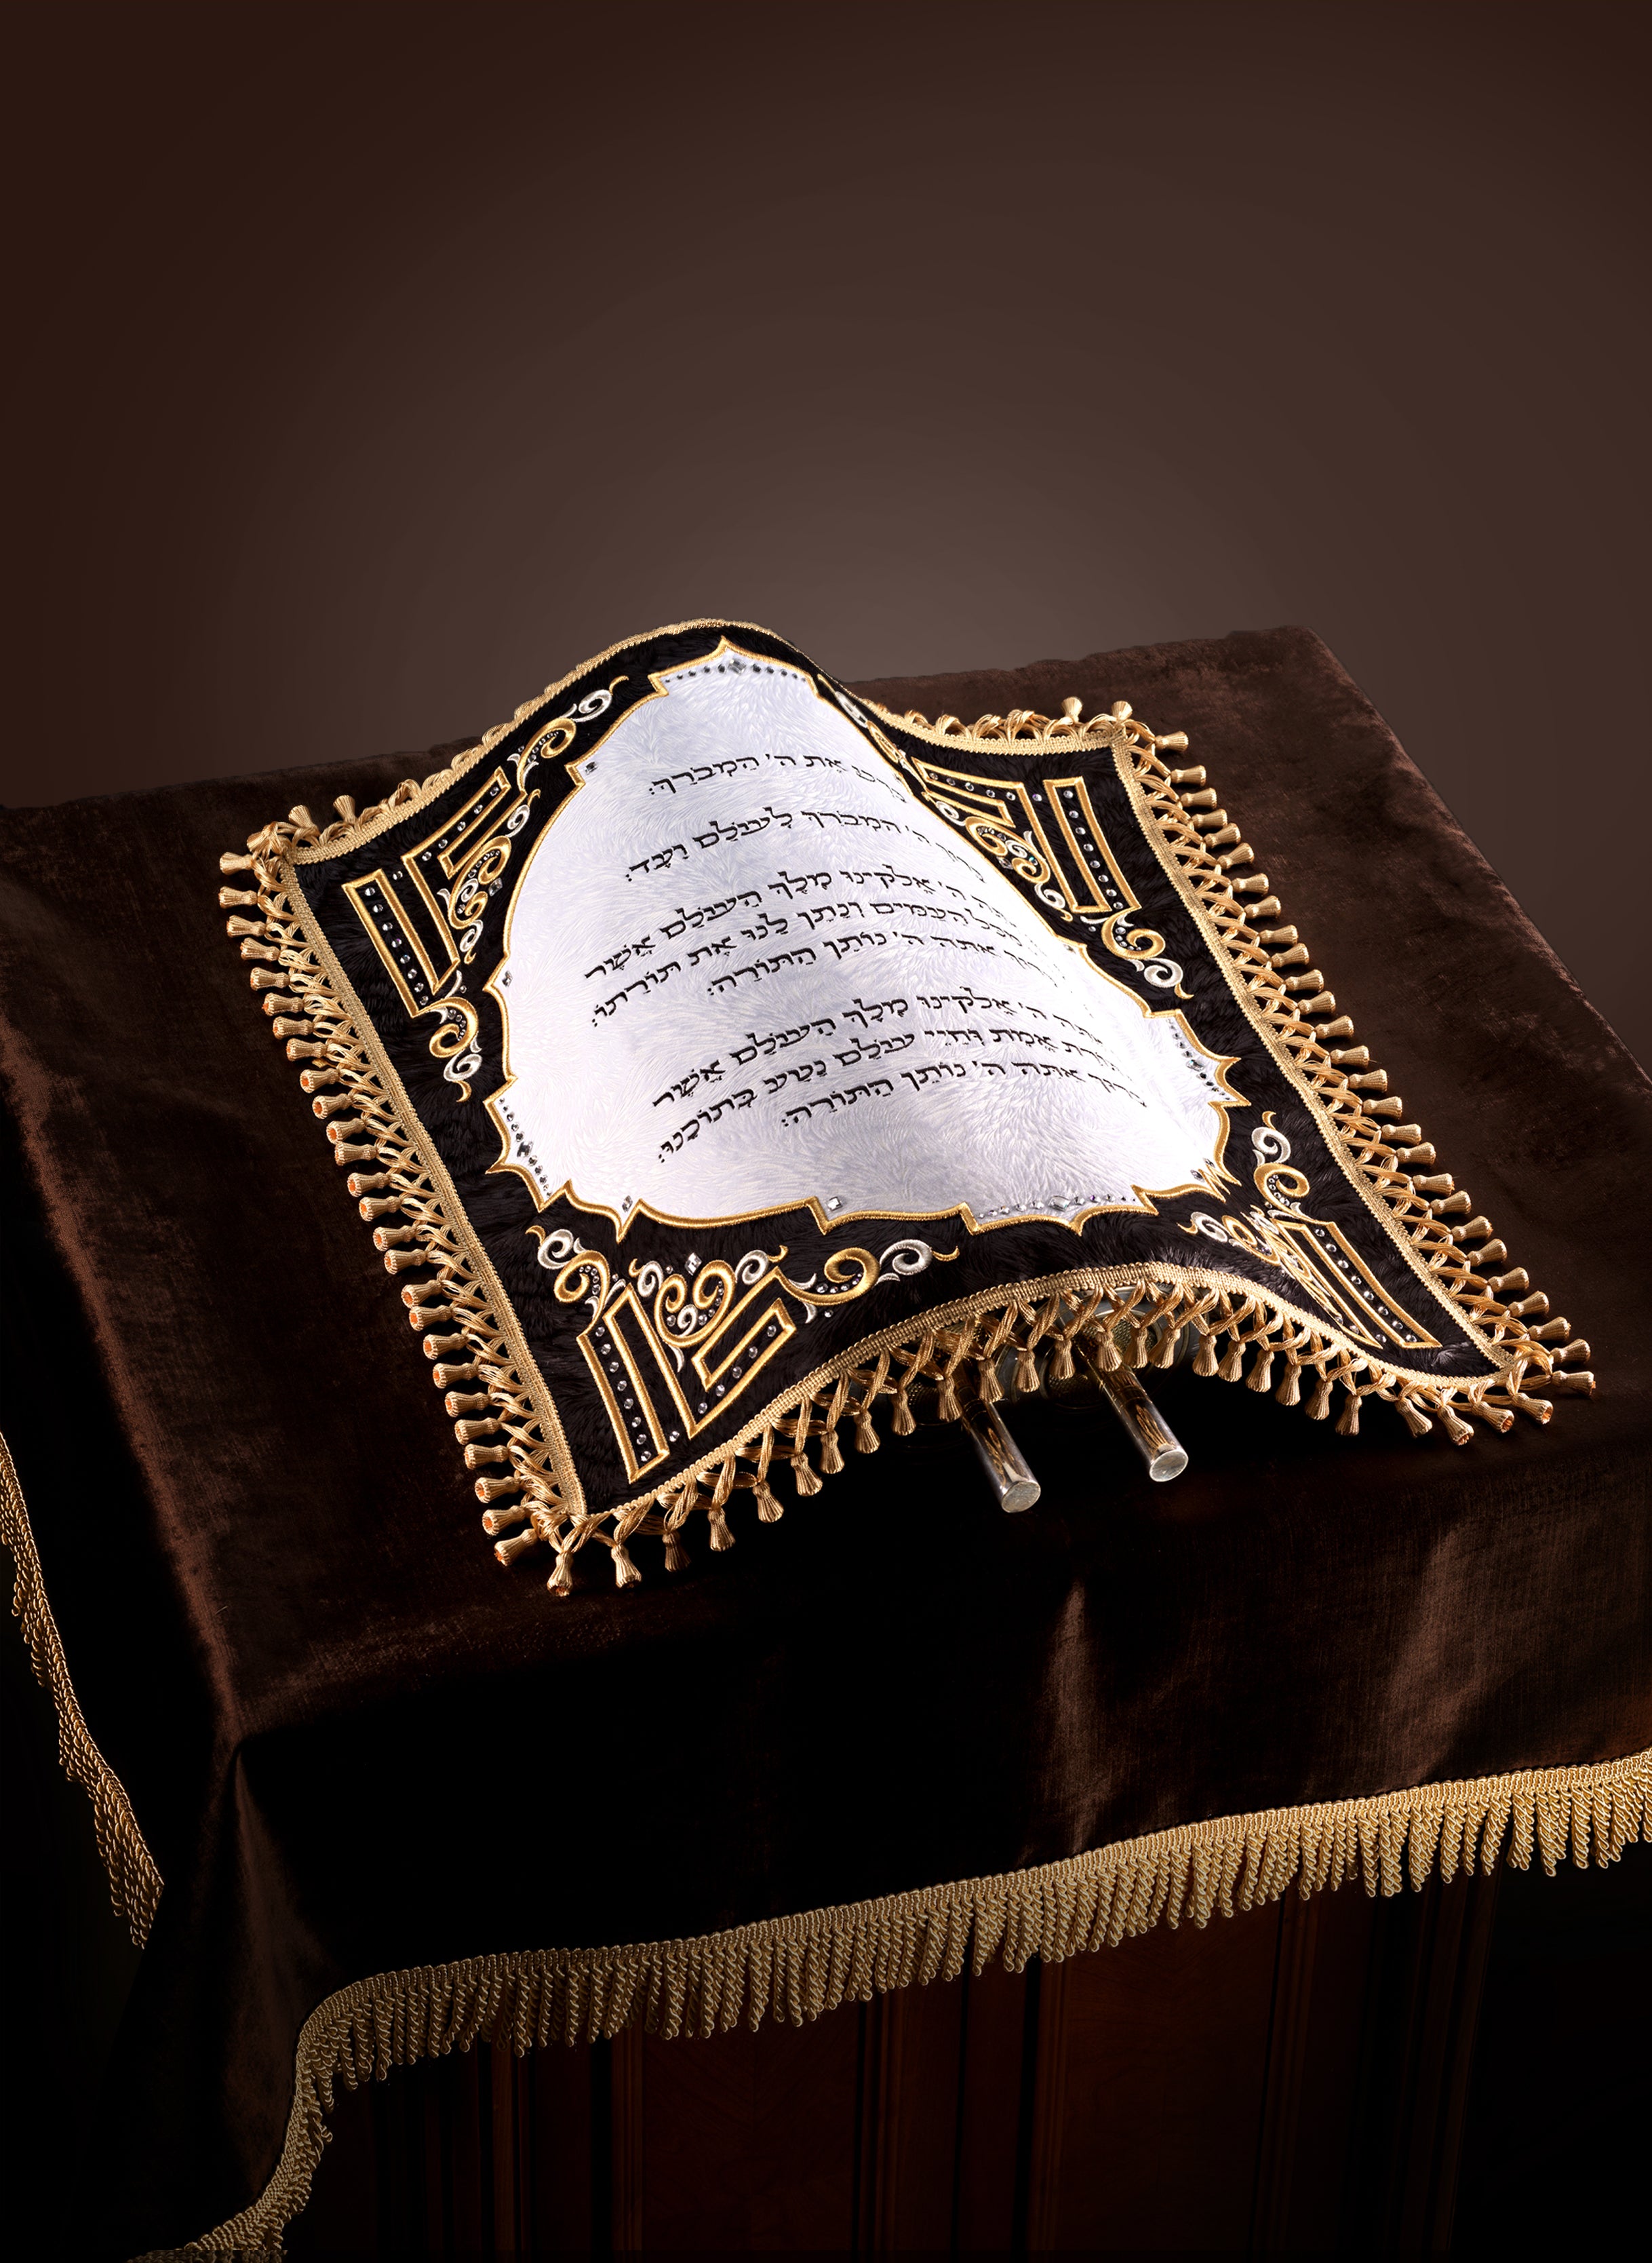 אֶת ה' הַמְבֹרָךְ:
ה' הַמְבֹרָךְ לְעוֹלָם וָעֶד:
ה' אֱלֹקֵינוּ מֶלֶךְ הָעוֹלָם אֲשֶׁר
הָעַמִּים וְנָתַן לָנוּ אֶת תּוֹרָתוֹ:
אַתָּה ה' נוֹתֵן הַתּוֹרָה:
ה' אֱלֹקֵינוּ מֶלֶךְ הָעוֹלָם אֲשֶׁר
אֱמֶת וְחַיֵּי עוֹלָם נָטַע בְּתוֹכֵנוּ:
אַתָּה ה' נוֹתֵן הַתּוֹרָה: